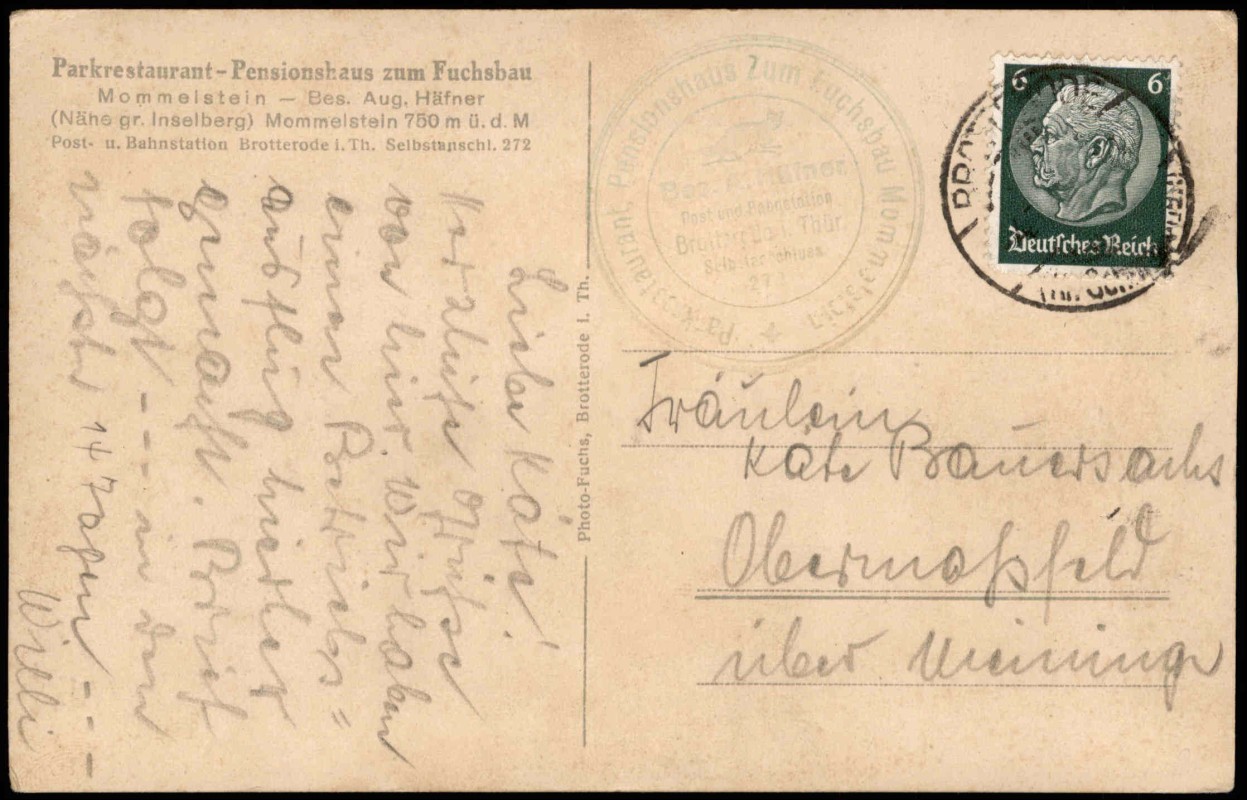 Parkrestaurant-Pensionshaus zum Fuchsbau
Mommelstein — Bes. Aug. Häfner
(Nähe gr. Inselberg) Mommelstein 750 m ü. d. M
Post- u. Bahnstation Brotterode i. Th. Selbstanschl. 272
Liebe Käte!
Herzliche Grüsse
von hier. Wir haben
einen Betriebs=
ausflug hierher
gemacht. Brief
folgt - - - in den
nächst 14 Tagen - - -
Willi
Photo-Fuchs, Brotterode i. Th.
Parkrestaurant, Pensionshaus Zum Fuchsbau Mommelstein
Bes. A. Häfner
Post und Bahnstation
Brotterode i. Thür.
Selbstanschluss
27
6 6
Deutsches Reich
Fräulein
Käte Bauersachs
Obermaßfeld
über Meininge